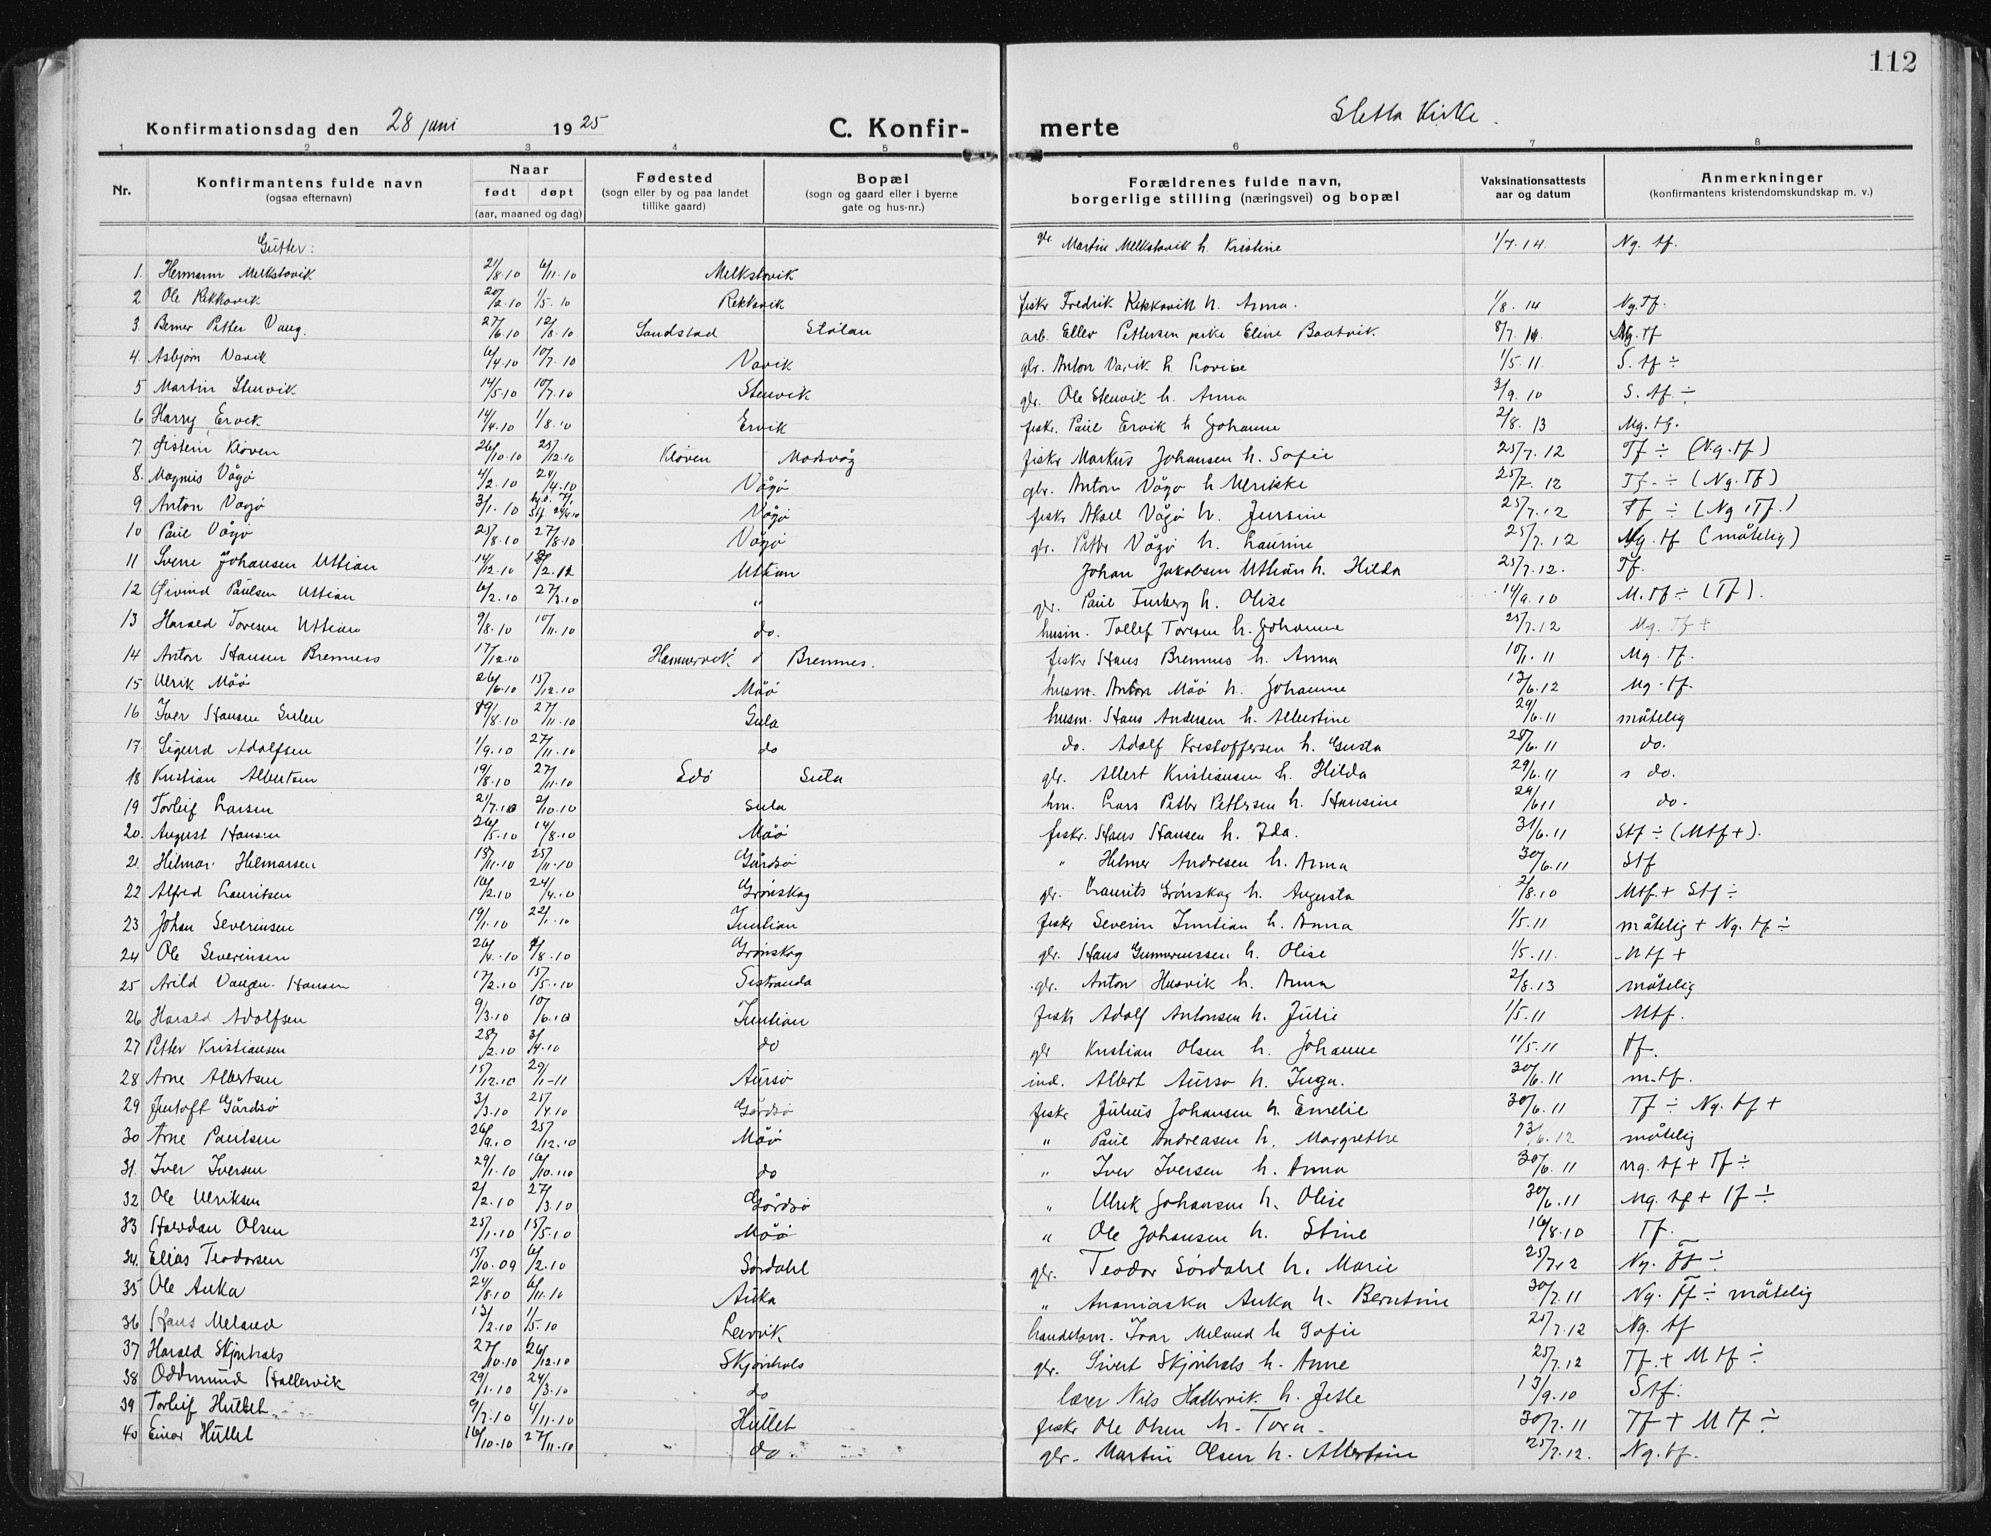 112
Konfirmationsdag den 28 juni 1925 C. Konfir- merte Sletta Kirke.
1 2 3 4 5 6 7 8
Nr. Konfirmantens fulde navn (ogsaa efternavn) Naar født døpt (aar, maaned og dag) Fødested (sogn eller by og paa landet tillike gaard) Bopæl (sogn og gaard eller i byerne gate og hus-nr.) Forældrenes fulde navn, borgerlige stilling (næringsvei) og bopæl Vaksinationsattests aar og datum Anmerkninger (konfirmantens kristendomskundskap m. v.)
Gutter: gbr Martin Melkstavik h. Kristine 1/7.14. Ng. tf.
1. Hermann Melkstavik 21/8.10 6/11.10 Melkstavik
2 Ole Rekkavik 20/2.10 1/5.10 Rekkavik fisker Fredrik Rekkavik h. Anna. 1/8.14 Ng. Tf.
3. Berner Petter Vaag. 27/6.10 12/8.10 Sandstad Stølan arb. Ellev Pettersen pike Eline Baatvik. 8/7.14. Mg. tf
4. Asbjørn Vavik 6/4.10 10/7.10 Vavik gbr. Anton Vavik h. Lovise 1/5.11. S. tf ÷
5 Martin Stenvik 14/5.10 10/7.10 Stenvik gbr. Ole Stenvik h. Anna 3/9.10 S. tf. ÷
6 Harry Ervik 14/4.10 1/8.10 Ervik fisk. Paul Ervik h Johanne 2/8.13 Mg. tf.
7. Øistein Kløven 26/10.10 25/12.10 Kløven Modsvåg fiskr Markus Johansen h. Sofie 25/7.12 Tf ÷ (Ng. tf)
8. Magnus Vågø 4/2.10 24/4.10 Vågø gbr. Anton Vågø h Ulrikke 25/7.12 Tf. ÷ (Ng. Tf)
9 Anton Vågø 3/1.10 Vågø fiskr Aksel Vågø h. Jursine 25/7.12 Tf ÷ (Ng. Tf.)
10 Paul Vågø 25/8.10 27/8.10 Vågø gbr. Petter Vågø h. Laurine 25/7.12 Mg. tf (måtelig)
11 Sverre Johansen Uttian 14/12.10 Uttian Johan Jakobsen Uttian h. Hilda 25/7.12. Tf.
12 Øivind Paulsen Uttian 6/2.10 27/3.10 " gbr. Paul Furberg h. Olise 14/9.10 M. Tf ÷ (Tf).
13 Harald Toresen Uttian 9/8.10 10/11.10 do. husm. Tollef Toresen h. Johanne 25/7.12 Mg. Tf +
14 Anton Hansen Bremnes 17/12.10 Hammervik Bremnes. fiskr Hans Bremnes h. Anna 10/1.11 Mg. Tf.
15 Ulrik Måø 26/6.10 15/12.10 Måø husm. Anton Måø h. Johanne 13/6.12 Mg. tf.
16 Iver Hansen Sulen 19/8.10 27/11.10 Sula husm. Hans Andersen h. Albertine 29/6.11 måtelig
17. Sigurd Adolfsen 1/9.10 27/11.10 do do. Adolf Kristoffersen h. Gusta 28/6.11 do.
18 Kristian Albertsen 19/8.10 27/11.10 Edø Sula gbr. Albert Kristiansen h. Hilda 29/6.11 do.
19 Torleif Larsen 21/7.10 2/10.10 Sula hm. Lars Petter Pettersen h. Hansine 29/6 11 do.
20. August Hansen 26/5.10 14/8.10 Måø fiskr. Hans Hansen h. Ida. 31/6.11 Stf ÷ (Mtf+).
21. Hilmar Hilmarsen 15/11.10 25/11.10 Gårdsø " Hilmer Andresen h. Anna 30/6.11 Stf
22 Alfred Lauritsen 16/2.10 24/4.10 Grønskag gbr. Laurits Grønskag h. Augusta 2/8.10 Mtf. + Stf ÷
23 Johan Severinsen 19/1.10 22/1.10 Inntian fiskr Severin Inntian h. Anna 1/5.11 måtelig + Ng. tf ÷
24 Ole Severinsen 26/4.10 7/8.10 Grønskag gbr. Hans Gunnariussen h. Olise 1/5.11. Mtf +
25 Arild Vangen Hansen 17/2.10 15/5.10 Sistranda gbr. Anton Husvik h. Anna 2/8.13 måtelig
26 Harald Adolfsen 9/3.10 10/6.10 Inntian fiskr Adolf Antonsen h. Julie 1/5.11 Mtf.
27 Petter Kristiansen 28/2.10 3/4.10 do gbr Kristian Olsen h. Johanne 11/5.11 tf.
28 Arne Albertsen 15/12.10 29/1-11 Aursø ind. Albert Aursø h. Inga. 30/6.11 m. tf.
29 Jentoft Gårdsø 3/3.10 25/4.10 Gårdsø fiskr Julius Johansen h. Emelie 30/6.11 Tf ÷ Ng. tf +
30 Arne Paulsen 26/9.10 25/12.10 Måø " Paul Andreasen h. Margrethe 13/6.12 måtelig
31. Iver Iversen 29/1.10 16/10.10 do " Iver Iversen h. Anna 30/6.11 ng. tf + Tf ÷
32 Ole Ulriksen 2/2.10 27/3.10 Gårdsø " Ulrik Johansen h. Olise 30/6.11 Mg. tf + Tf ÷
33 Halvdan Olsen 25/1.10 15/5.10 Måø " Ole Johansen h. Stine 16/8.10 Tf.
34. Elias Teodorsen 15/10.09 6/2.10 Sørdahl gbr. Teodor Sørdahl h. Marie 25/7.12 Ng. Tf ÷
35 Ole Auka 24/8.10 6/11.10 Auka " Ananiaska Auka h. Berntine 30/7.11 Ng. Tf ÷ måtelig
36 Hans Meland 13/2.10 1/5.10 Leervik handelsm. Ivar Meland h Sofie 25/7.12 Ng. tf
37 Harald Skjønhals 27/10.10 26/12.10 Skjønhals gbr. Sivert Skjønhals h. Anne 25/7.12 Tf. + M tf ÷
38 Oddmund Hallervik 29/1.10 24/3.10 do lærer Nils Hallervik h. Jette 13/9.10 Stf.
39 Torleif Hullet 9/7.10 4/11.10 Hullet fiskr Ole Olsen h. Tora. 30/7.11 Tf + M Tf ÷
40 Einar Hullet 16/10.10 27/11.10 do. gbr. Martin Olsen h. Albertine 25/7.12. Ng. tf.